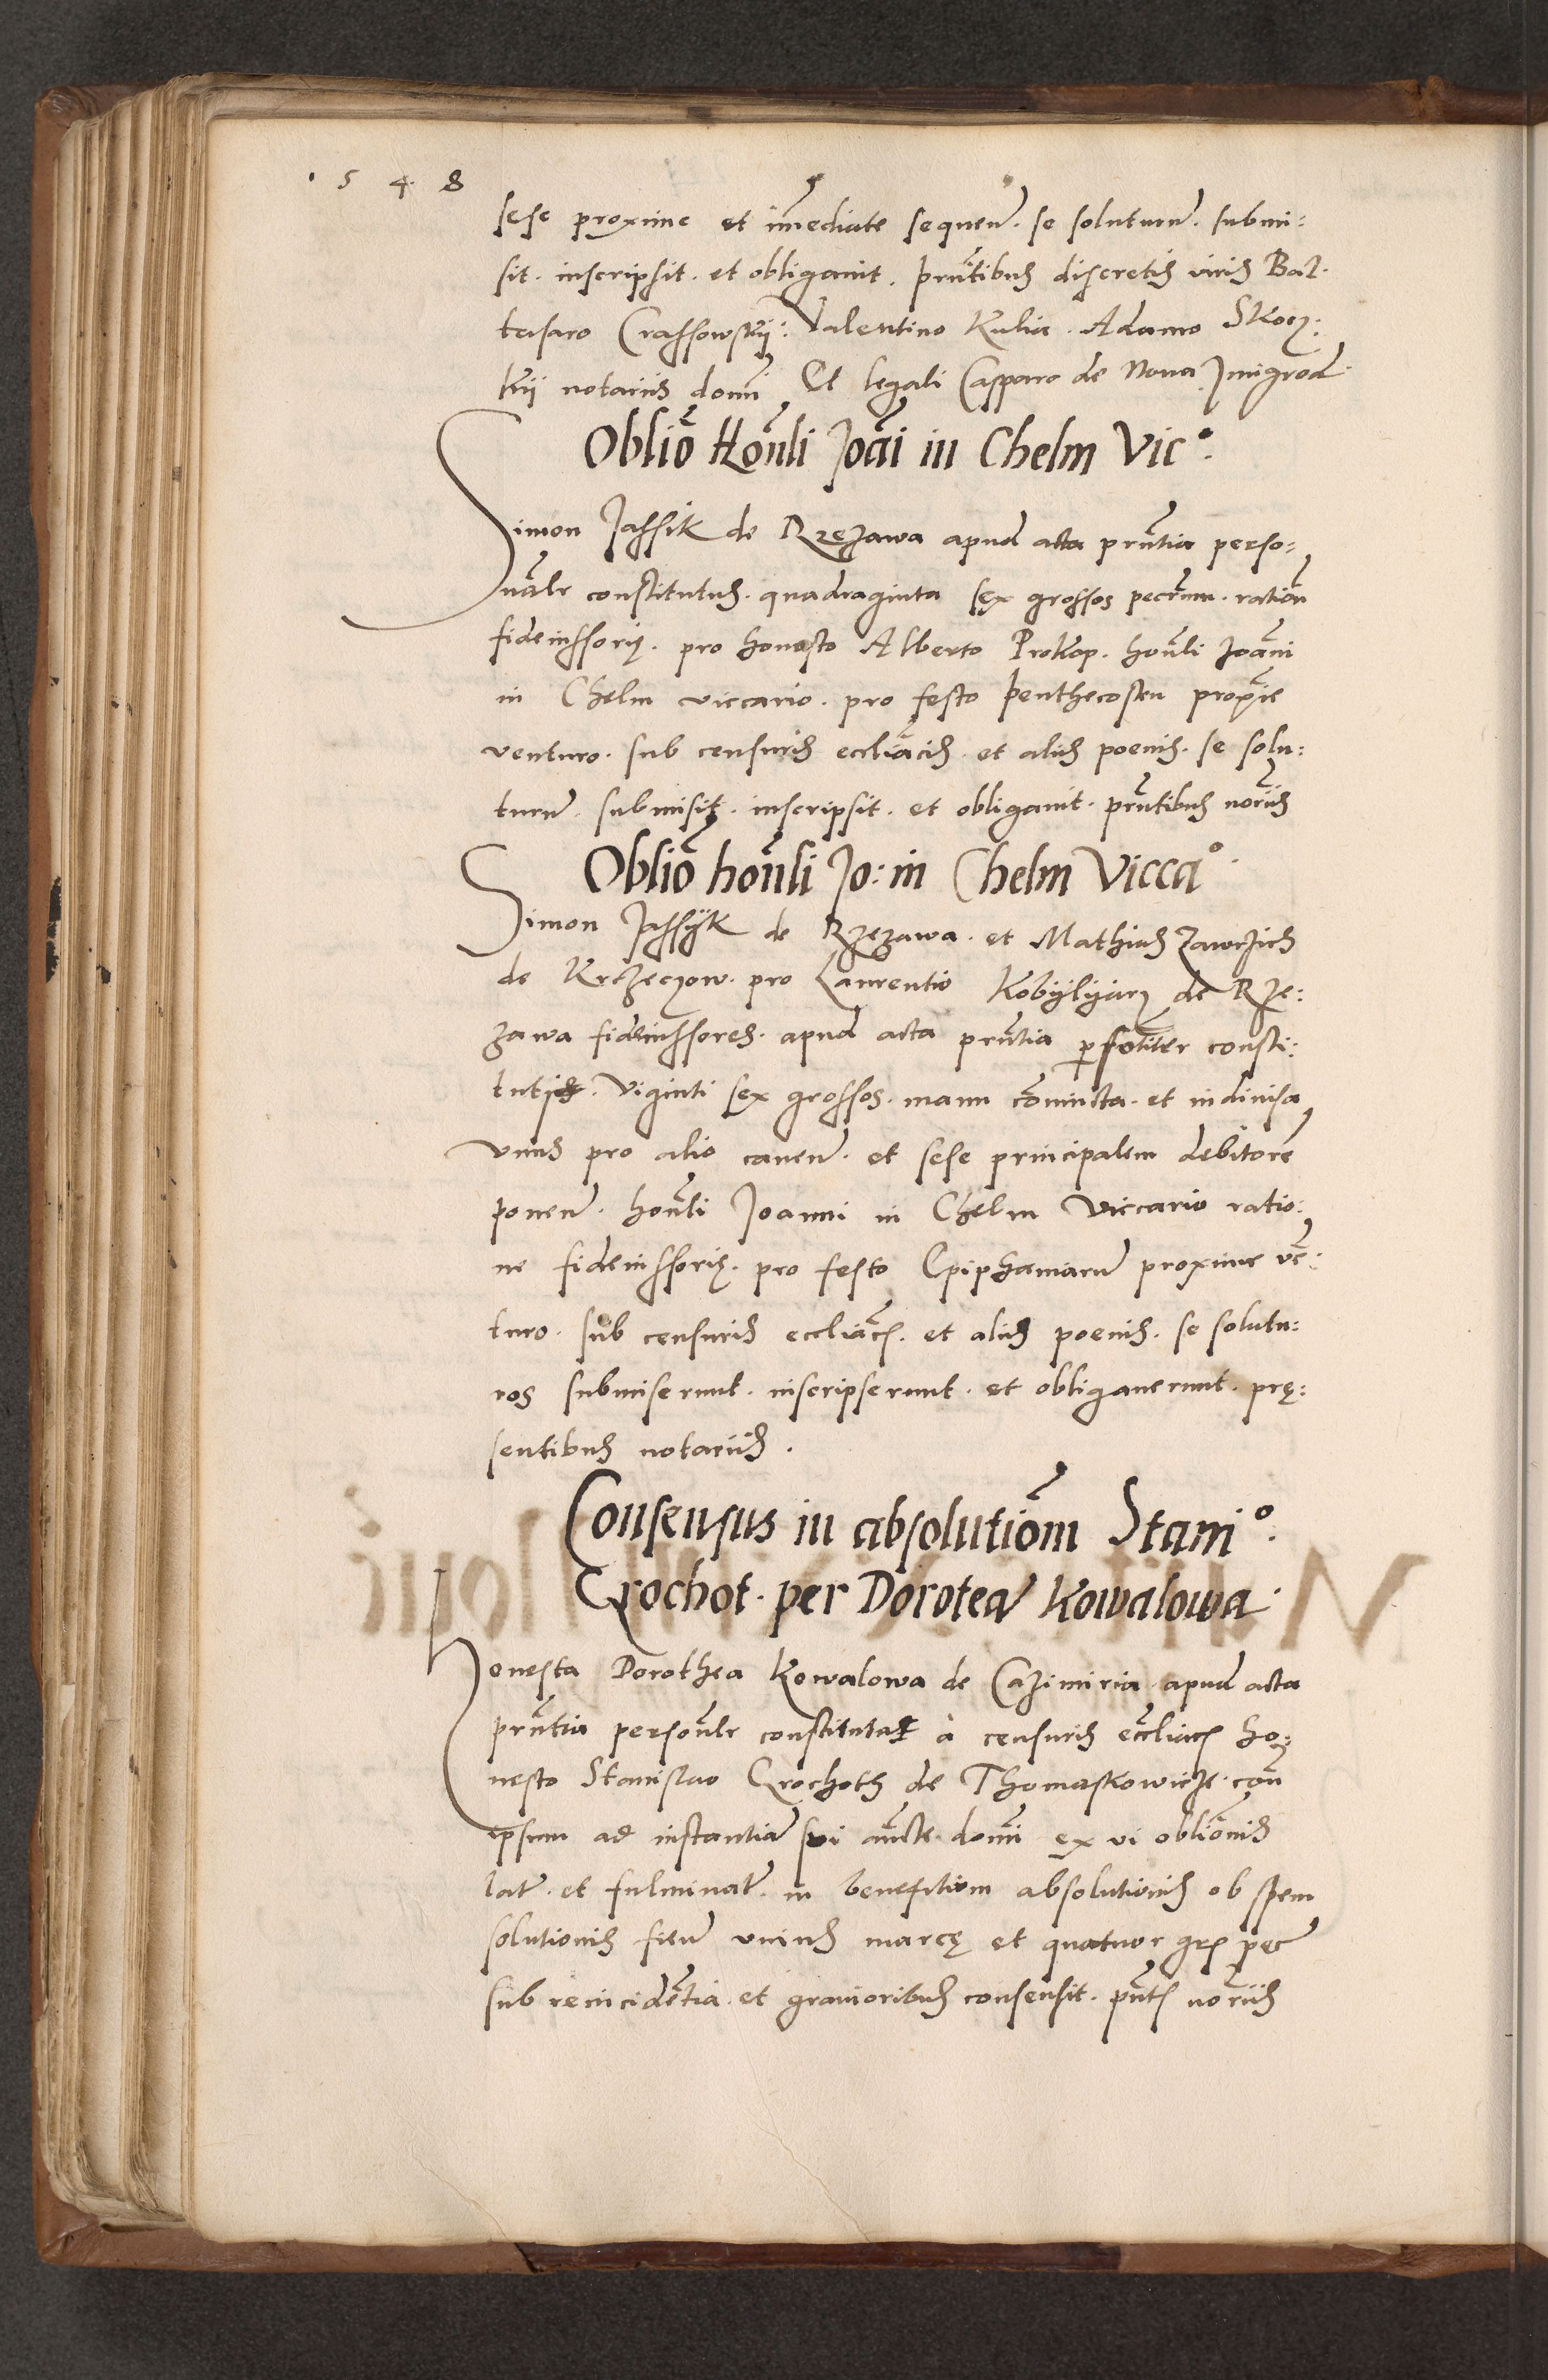 1 5 4 8
sese proxime et im̃ediate sequeñ. se soluturũ. submi:
sit. inscripsit. et obligauit. prñtibus discretis viris Bal-
tasaro Crassowskij: Valentino Kulia. Adamo Skocz:
kij notariis domĩ Et legali Casparo de Noua Jmigrod
Obliõ Honĩli Joãi in Chelm Vic°.
Simon Jassik de Rzezawa apud acta prñtia perso:
nalr̃ constitutus. quadraginta sex grossos pecũm. ratioñ
fideiussorię. pro honesto Alberto Prokop. honĩli Joãni
in Chelm viccario. pro festo penthecosten proxĩe
venturo. sub censuris eccliãcis. et aliis poenis. se solu:
turũ. submisit. inscripsit. et obligauit. prñtibus norĩis
Obliõ honĩli Jo: in Chelm Vicca°.
Simon Jassÿk de Rzezawa. et Mathias Zawrzich
de Krzeczow. pro Laurentio Kobÿlÿarz de Rze:
zawa fideiussores. apud acta prñtia psoliter consti:
tuti. Viginti sex grossos. manu cõiuncta. et indiuisa
vnus pro alio caueñ. et sese principalem debitorẽ
poneñ. honĩli Joanni in Chelm Viccario ratio:
ne fideiussorię. pro festo Epiphaniarũ proxime vẽ:
turo. sub censuris eccliãcs. et aliis poenis. se solutu:
ros submiserunt. inscripserunt. et obligauerunt. prę:
sentibus notariis.
Consensus in absolutiõm Stani°.
Crochot. per Doroteã Kowalowa.
Honesta Dorothea Kowalowa de Cazimiria apud acta
prñtia personalr̃ constituta à censuris eccliãcs ho:
nesto Stanislao Crochoth de Thomaskowicze. coñ
ipsum ad instantiã sui aũcte. domĩ ex vi obliõnis
latẽ. et fulminatẽ. in benefitium absolutionis ob spem
solutionis fieñ vnius marcę et quatuor grs pec̃
sub reincidẽtia. et grauioribus consensit. pñts norĩis